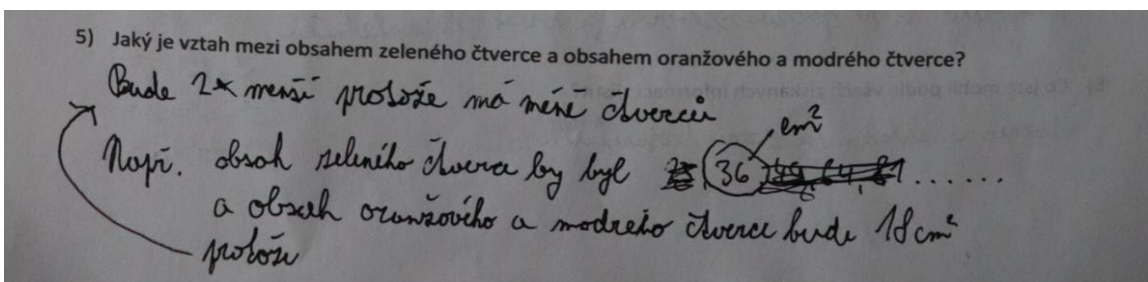 5) Jaký je vztah mezi obsahem zeleného čtverce a obsahem oranžového a modrého čtverce?
Bude 2x menší protože má méně čtverců
cm²
Např. obsah zeleného čtverce by byl 36 49, 64, 81 ......
a obsah oranžového a modrého čtverce bude 18 cm²
protože